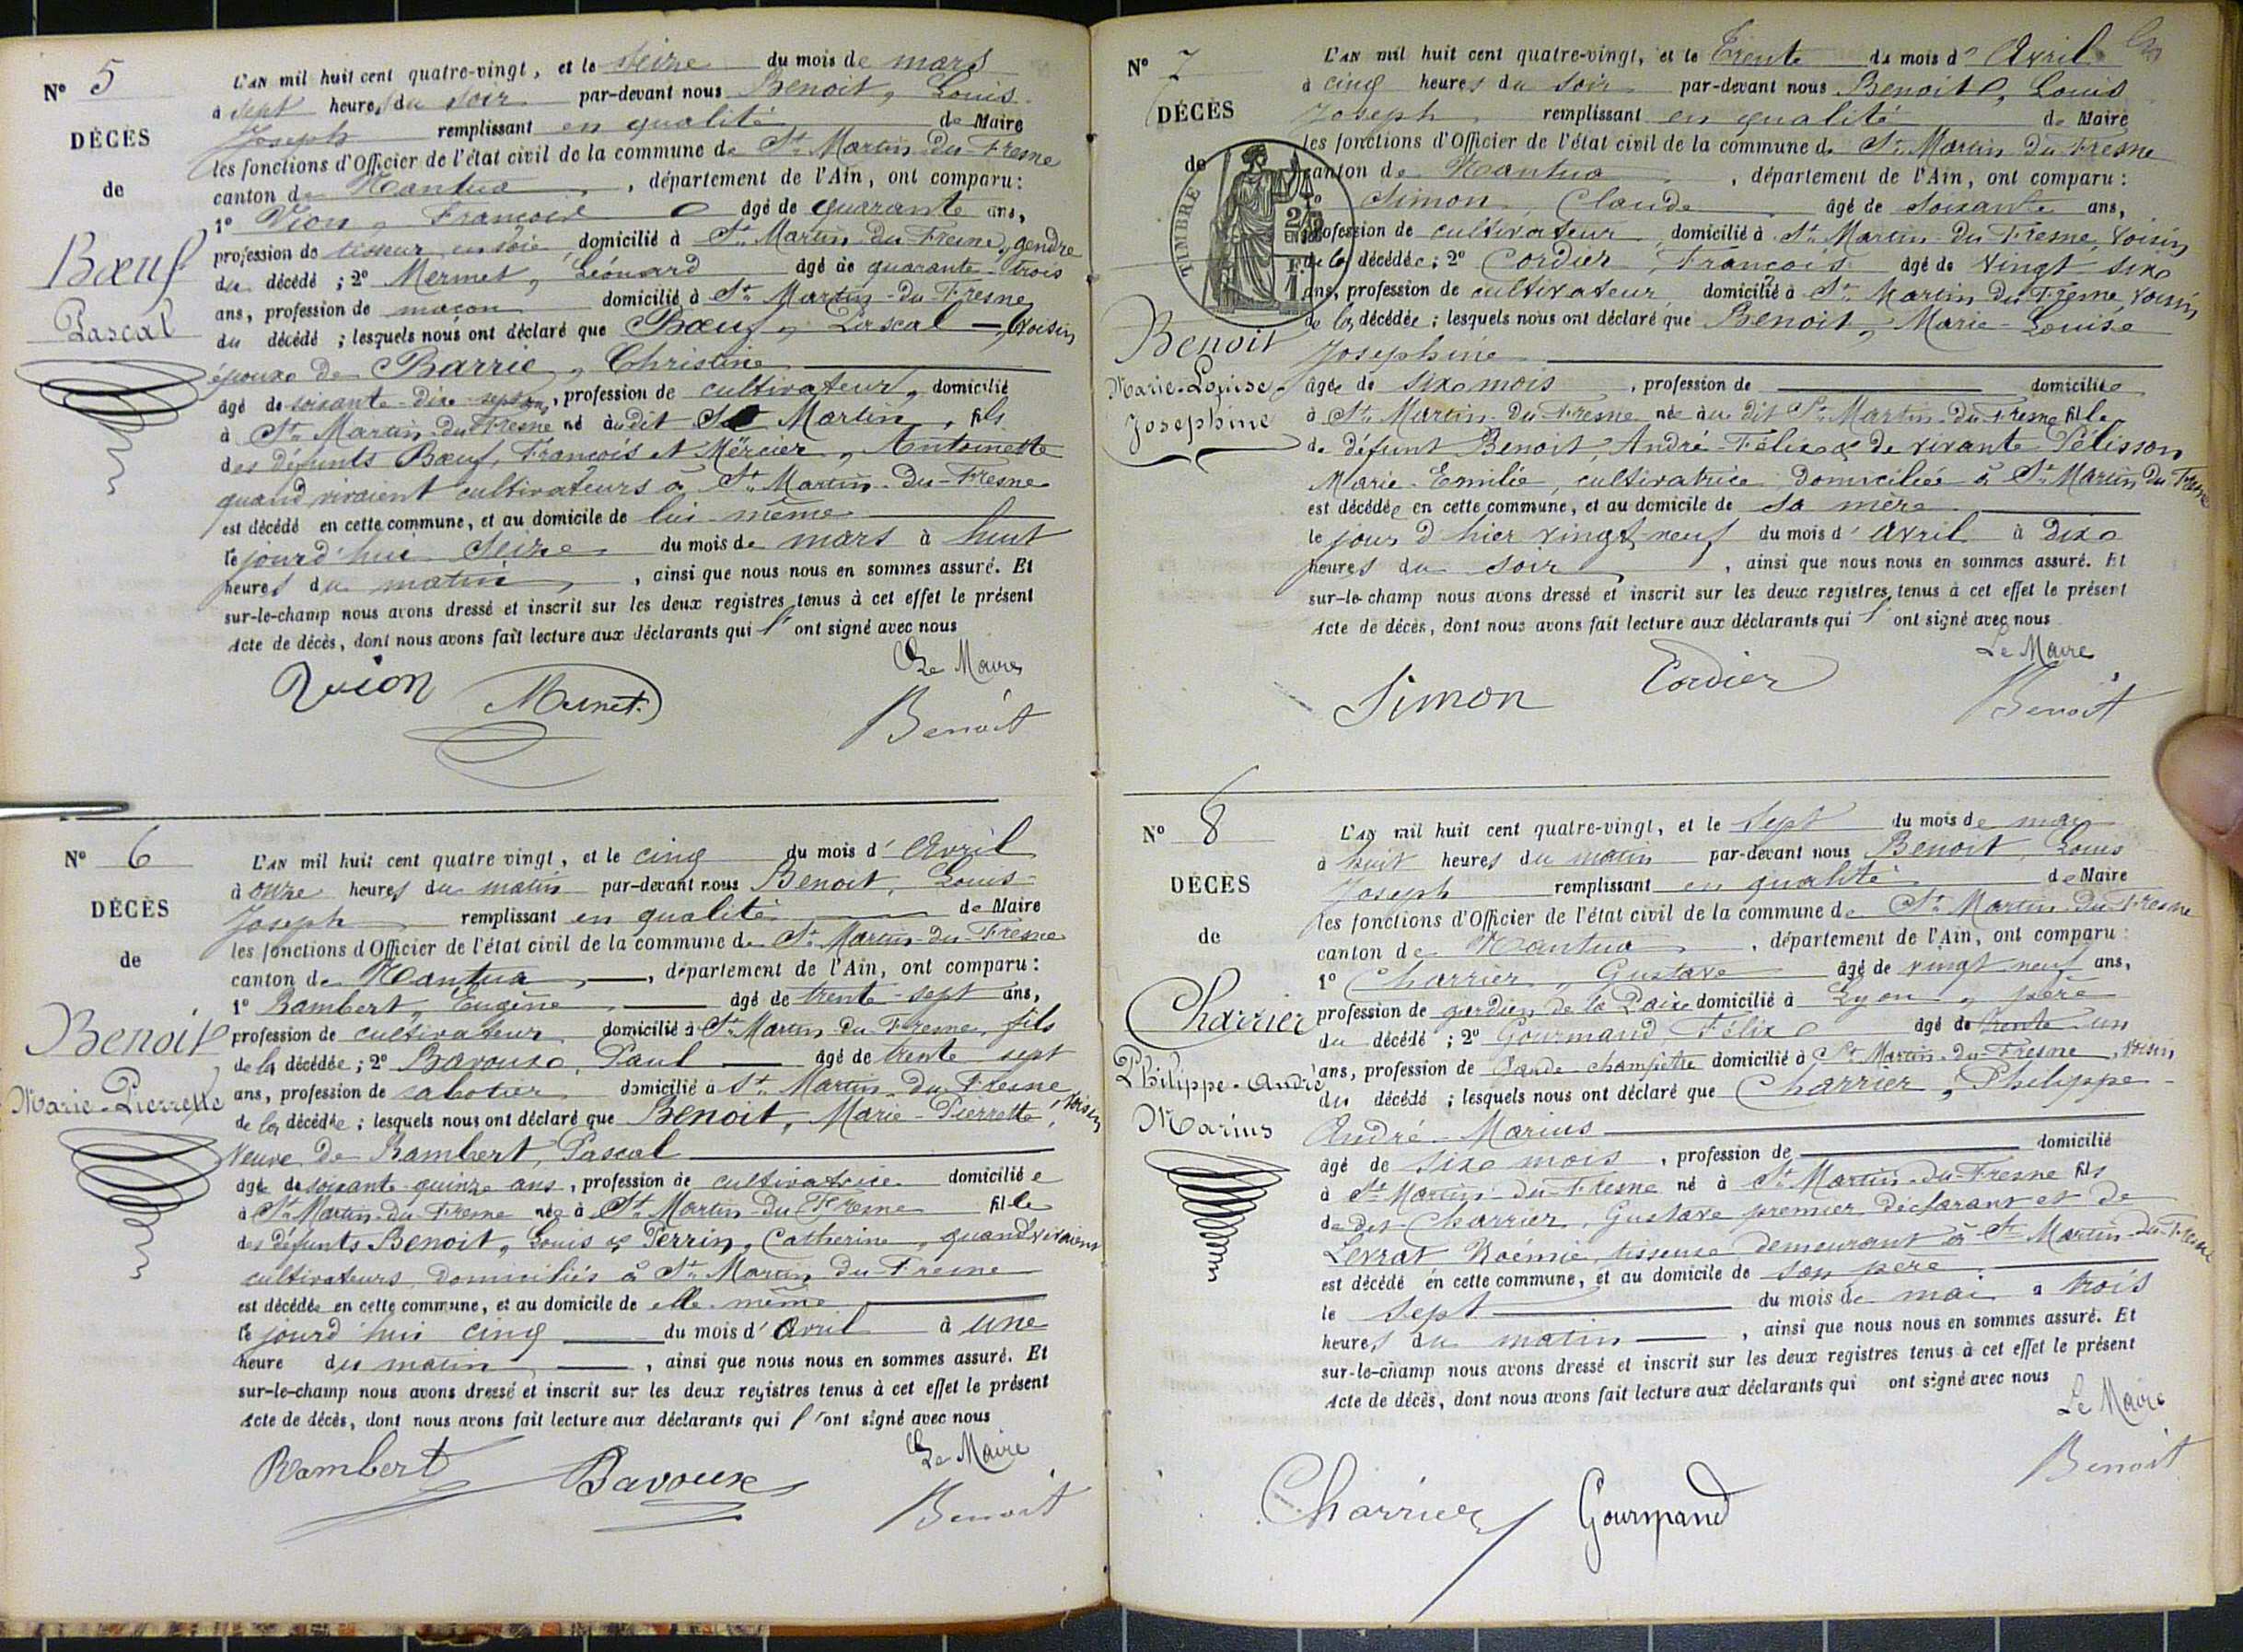 N° 5
DÉCÈS
de
Bœuf
Pascal
L'AN mil huit cent quatre-vingt, et le seize du mois de mars
à sept heures du soir par-devant nous Benoit, Louis
Joseph remplissant en qualité de Maire
les fonctions d'Officier de l'état civil de la commune de St. Martin-du-Fresne
canton de Nantua, département de l'Ain, ont comparu :
1° Vion, François âgé de quarante ans,
profession de tisseur en soie domicilié à St. Martin du Fresne, gendre
du décédé ; 2° Mermet, Léonard âgé de quarante-trois
ans, profession de maçon domicilié à St. Martin-du-Fresne
du décédé ; lesquels nous ont déclaré que Bœuf, Pascal —, voisin
époux de Barrie, Christine
âgé de soixante-dix-sept ans, profession de cultivateur, domicilié
à St. Martin-du-Fresne né audit St Martin, fils
des défunts Bœuf, François et Mercier, Antoinette
quand vivaient cultivateurs à St. Martin-du-Fresne
est décédé en cette commune, et au domicile de lui-même
le jourd'hui seize du mois de mars à huit
heures du matin, ainsi que nous nous en sommes assuré. Et
sur-le-champ nous avons dressé et inscrit sur les deux registres tenus à cet effet le présent
Acte de décès, dont nous avons fait lecture aux déclarants qui l'ont signé avec nous
Le Maire
Vion Mermet
Benoit
N° 6
DÉCÈS
de
Benoit
Marie-Pierrette
L'AN mil huit cent quatre vingt, et le cinq du mois d'Avril
à onze heures du matin par-devant nous Benoit, Louis
Joseph remplissant en qualité de Maire
les fonctions d'Officier de l'état civil de la commune de St. Martin-du-Fresne
canton de Nantua —, département de l'Ain, ont comparu :
1° Rambert, Eugène âgé de trente-sept ans,
profession de cultivateur domicilié à St. Martin du Fresne, fils
de la décédée ; 2° Bavoux, Paul âgé de trente sept
ans, profession de sabotier domicilié à St. Martin-du-Fresne
de la décédée ; lesquels nous ont déclaré que Benoit, Marie-Pierrette, voisin
Veuve de Rambert, Pascal
âgée de soixante-quinze ans, profession de cultivatrice domiciliée
à St. Martin-du-Fresne née à St. Martin-du-Fresne fille
des défunts Benoit, Louis & Perrin, Catherine, quand vivaient
cultivateurs domiciliés à St. Martin du-Fresne
est décédée en cette commune, et au domicile de elle-même
le jourd'hui cinq du mois d'avril à une
heure du matin —, ainsi que nous nous en sommes assuré. Et
sur-le-champ nous avons dressé et inscrit sur les deux registres tenus à cet effet le présent
Acte de décès, dont nous avons fait lecture aux déclarants qui l'ont signé avec nous
Le Maire
Rambert Bavoux
Benoit
N° 7
DÉCÈS
de
TIMBRE
Benoit
Marie-Louise-
Josephine
L'AN mil huit cent quatre-vingt, et le Trente du mois d'Avril
à cinq heures du soir par-devant nous Benoit, Louis
Joseph remplissant en qualité de Maire
les fonctions d'Officier de l'état civil de la commune de St. Martin du Fresne
canton de Nantua, département de l'Ain, ont comparu :
1° Simon, Claude âgé de soixante ans,
profession de cultivateur domicilié à St. Martin-du-Fresne, voisin
de la décédée ; 2° Cordier, François âgé de vingt six
ans, profession de cultivateur domicilié à St. Martin du Fresne, voisin
de la décédée ; lesquels nous ont déclaré que Benoit, Marie-Louise
Josephine
âgée de six mois, profession de — domiciliée
à St. Martin-du-Fresne née au dit St. Martin-du-Fresne fille
de défunt Benoit, André-Félix & de vivante Pélisson
Marie-Emilie, cultivatrice domiciliée à St. Martin du Fresne
est décédée en cette commune, et au domicile de sa mère
le jour d'hier vingt-neuf du mois d'avril à dix
heures du soir, ainsi que nous nous en sommes assuré. Et
sur-le-champ nous avons dressé et inscrit sur les deux registres tenus à cet effet le présent
Acte de décès, dont nous avons fait lecture aux déclarants qui l'ont signé avec nous
Le Maire
Simon Cordier
Benoit
N° 8
DÉCÈS
de
Charrier
Philippe-André
Marius
L'AN mil huit cent quatre-vingt, et le sept du mois de mai
à huit heures du matin par-devant nous Benoit, Louis
Joseph remplissant en qualité de Maire
les fonctions d'Officier de l'état civil de la commune de St. Martin-du-Fresne
canton de Nantua, département de l'Ain, ont comparu :
1° Charrier, Gustave âgé de vingt neuf ans,
profession de gardien de la Paix domicilié à Lyon, père
du décédé ; 2° Gourmand, Félix âgé de trente-un
ans, profession de Garde-champêtre domicilié à St. Martin-du-Fresne, voisin
du décédé ; lesquels nous ont déclaré que Charrier, Philippe-
André-Marius
âgé de six mois, profession de — domicilié
à St. Martin-du-Fresne né à St. Martin-du-Fresne fils
de dit Charrier, Gustave premier déclarant et de
Levrat Noémie, tisseuse demeurant à St. Martin-du-Fresne
est décédé en cette commune, et au domicile de son père
le sept du mois de mai à trois
heures du matin —, ainsi que nous nous en sommes assuré. Et
sur-le-champ nous avons dressé et inscrit sur les deux registres tenus à cet effet le présent
Acte de décès, dont nous avons fait lecture aux déclarants qui ont signé avec nous
Le Maire
Benoit
Charrier Gourmand